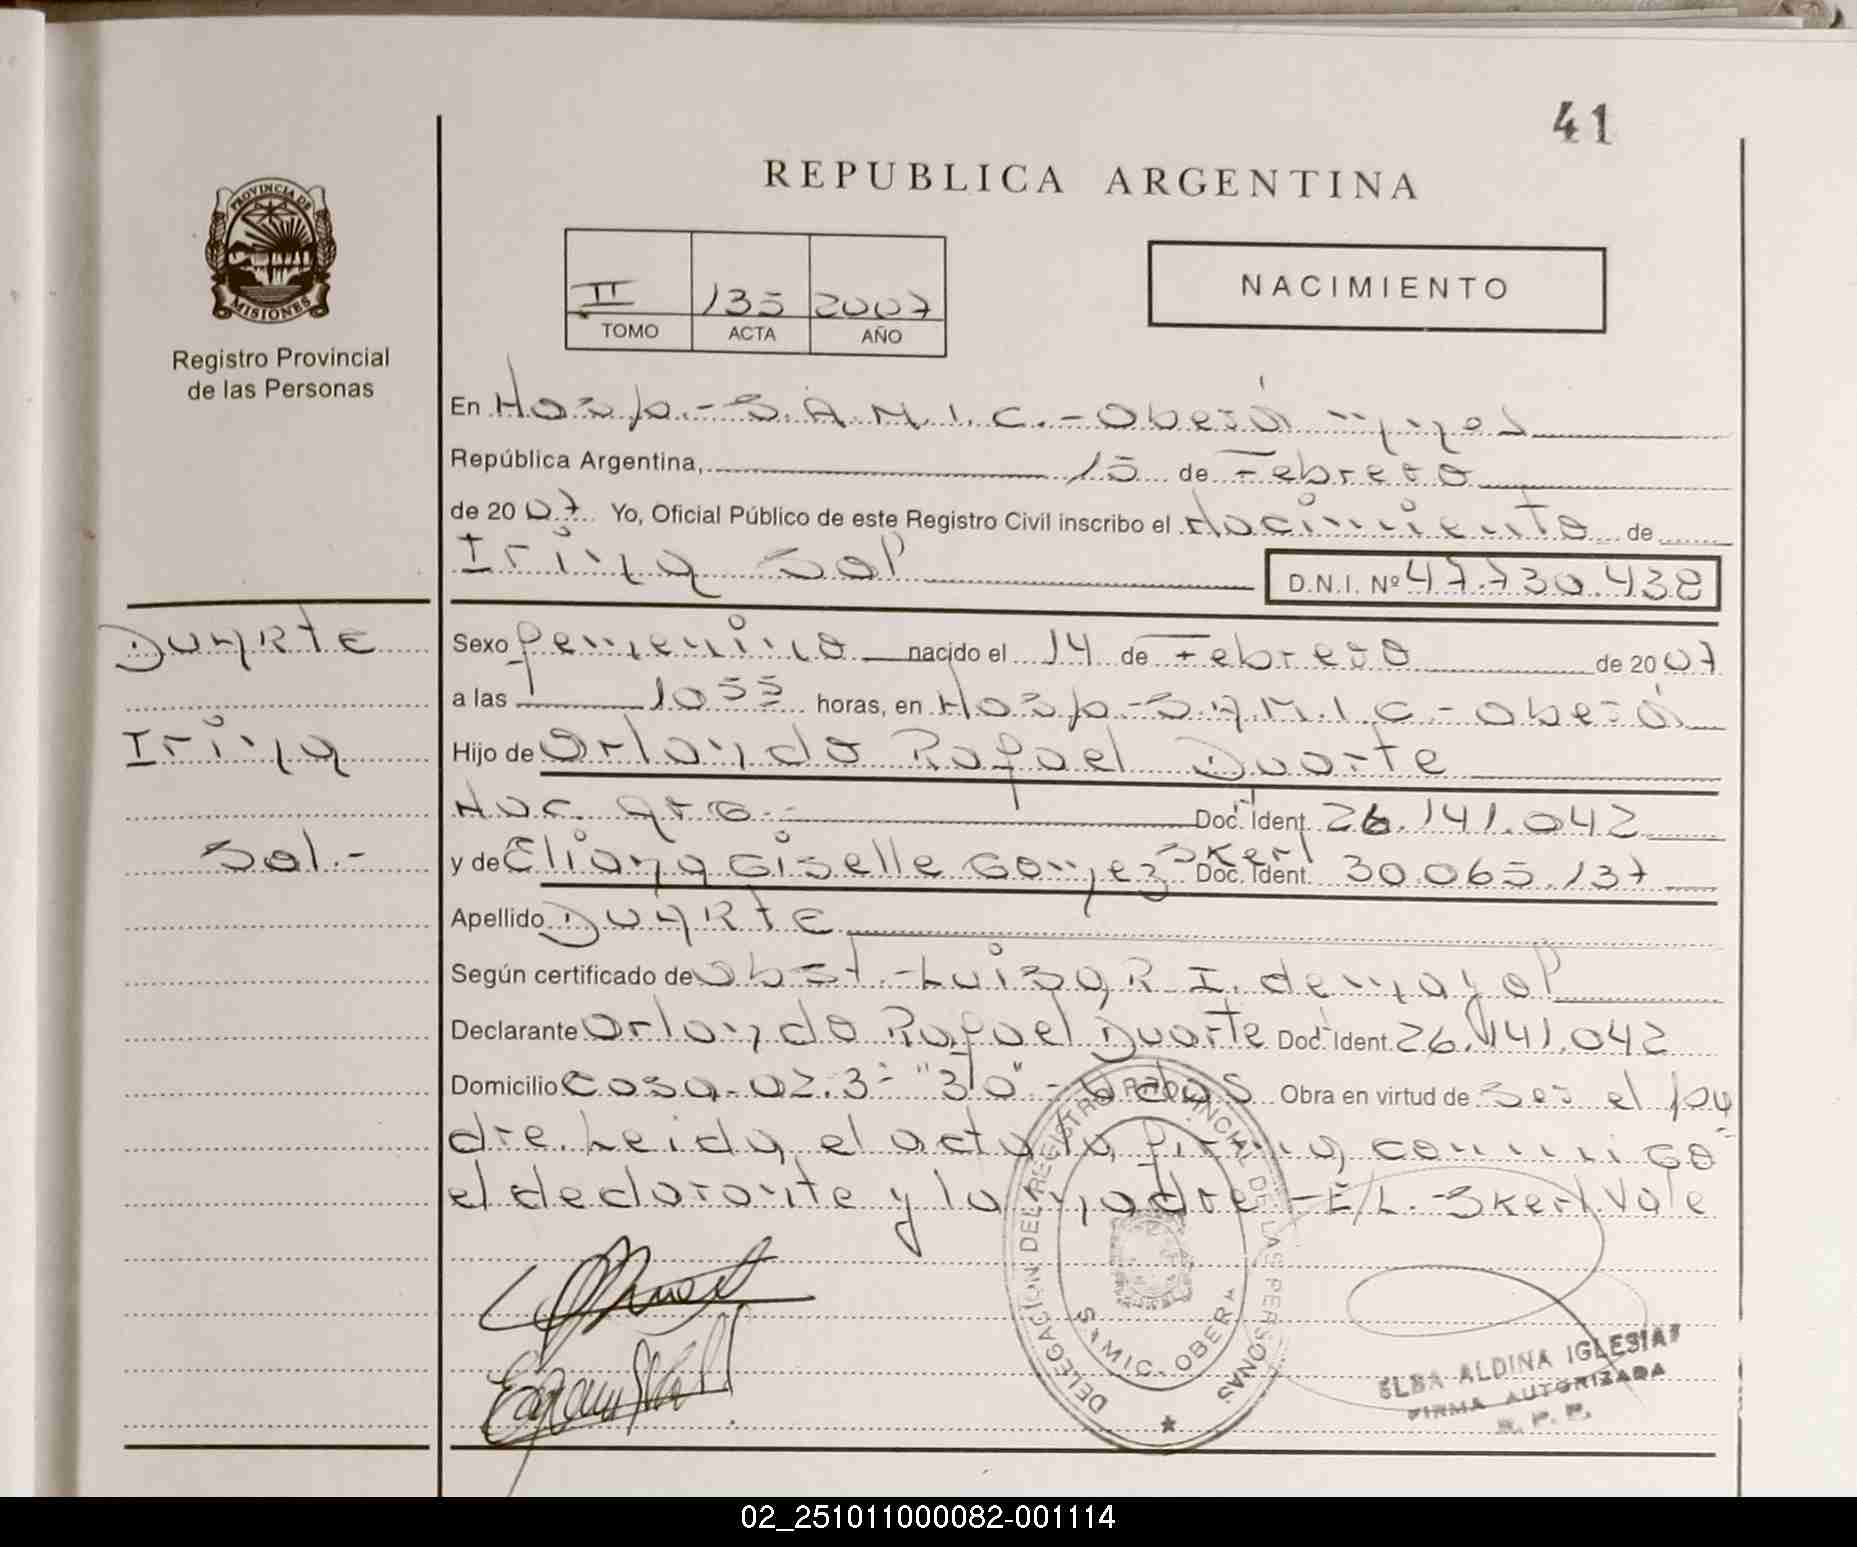 41
REPUBLICA ARGENTINA
PROVINCIA DE
MISIONES
Registro Provincial
de las Personas
II 135 2007
TOMO ACTA AÑO
NACIMIENTO
En Hosp.-S.A.M.I.C.-Oberá
República Argentina, 15 de Febrero
de 2007 Yo, Oficial Público de este Registro Civil inscribo el nacimiento de
Irina Sol D.N.I. Nº 47.730.438
Duarte
Irina
Sol.-
Sexo femenino nacido el 14 de Febrero de 2007
a las 1055 horas, en Hosp-S.A.M.I.C.-Oberá
Hijo de Orlando Rafael Duarte
Nac. arg.- Doc. Ident. 26.141.042
y de Eliana Giselle Gomez Skerl Doc. Ident. 30.065.137
Apellido Duarte
Según certificado de Obst.-Luisa R I. de
Declarante Orlando Rafael Duarte Doc. Ident. 26.141.042
Domicilio Casa-02.3- "30"- Obra en virtud de ser el pa
dre. Leida el acta la firma conmigo
el declarante y la madre.-E/L.-Skerl.Vale
DELEGACION DEL REGISTRO PROVINCIAL DE LAS PERSONAS
SAMIC-OBERA
ELBA ALDINA IGLESIAS
FIRMA AUTORIZADA
R. P. P.
02_251011000082-001114